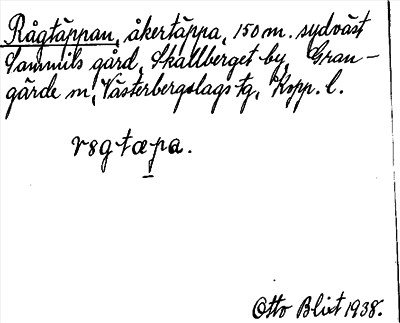 Rågtäppan, åkertäppa, 150 m. sydväst
Sammils gård, Skallberget by, Gran-
gärde sn, Västerbergslags tg, Kopp. l.
rsgtæpa.
Otto Blixt 1938.